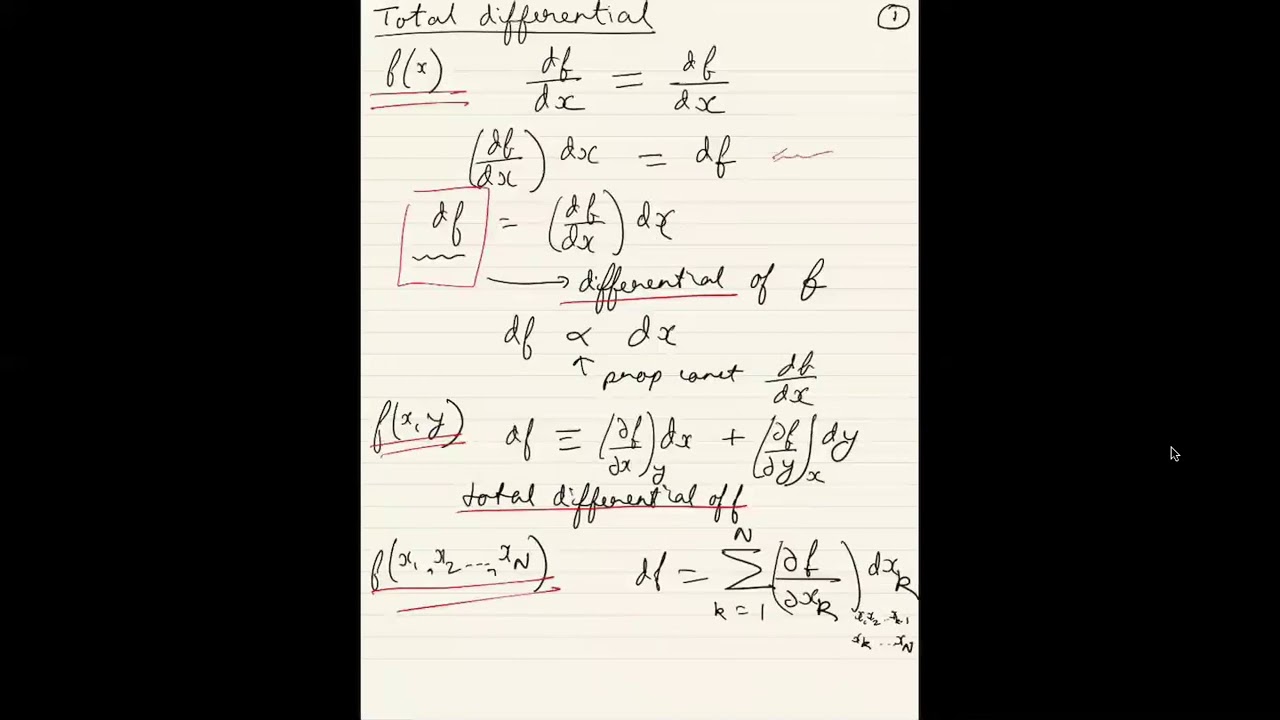 Total differential ①
f(x) df/dx = df/dx
(df/dx) dx = df
df = (df/dx) dx
→ differential of f
df ∝ dx
↑ prop const df/dx
f(x, y) df ≡ (∂f/∂x)_y dx + (∂f/∂y)_x dy
total differential of f
f(x₁, x₂ ..., x_N) df = ∑_{k=1}^{N} (∂f/∂x_k)_{x₁x₂...x_{k-1} x_k...x_N} dx_k